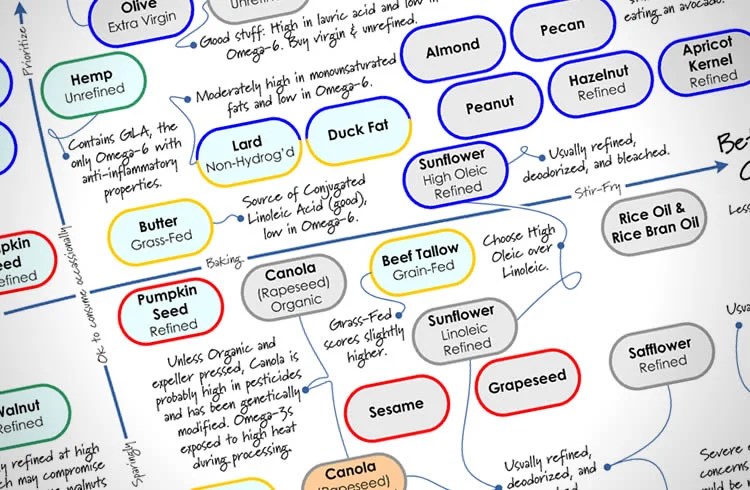 Olive
Extra Virgin
Unrefined
Good stuff: High in lauric acid and low in
Omega-6. Buy virgin & unrefined.
eating an avocado.
Pecan
Almond
Prioritize
Hemp
Unrefined
Moderately high in monounsaturated
fats and low in Omega-6.
Hazelnut
Refined
Apricot
Kernel
Refined
Peanut
Contains GLA, the
only Omega-6 with
anti-inflammatory
properties.
Lard
Non-Hydrog'd
Duck Fat
Sunflower
High Oleic
Refined
Usually refined,
deodorized, and bleached.
Stir-Fry
Source of Conjugated
Linoleic Acid (good),
low in Omega-6.
Butter
Grass-Fed
Rice Oil &
Rice Bran Oil
Less
Baking
Ok to consume occasionally
Canola
(Rapeseed)
Organic
Beef Tallow
Grain-Fed
Choose High
Oleic over
Linoleic.
Pumpkin
Seed
Refined
Grass-Fed
scores slightly
higher.
Sunflower
Linoleic
Refined
Safflower
Refined
Unless Organic and
expeller pressed, Canola is
probably high in pesticides
and has been genetically
modified. Omega-3s
exposed to high heat
during processing.
Sesame
Grapeseed
Walnut
Refined
refined at high
may compromise
walnuts
Sparingly
Canola
(Rapeseed)
Usually refined,
deodorized, and
Severe
concerns